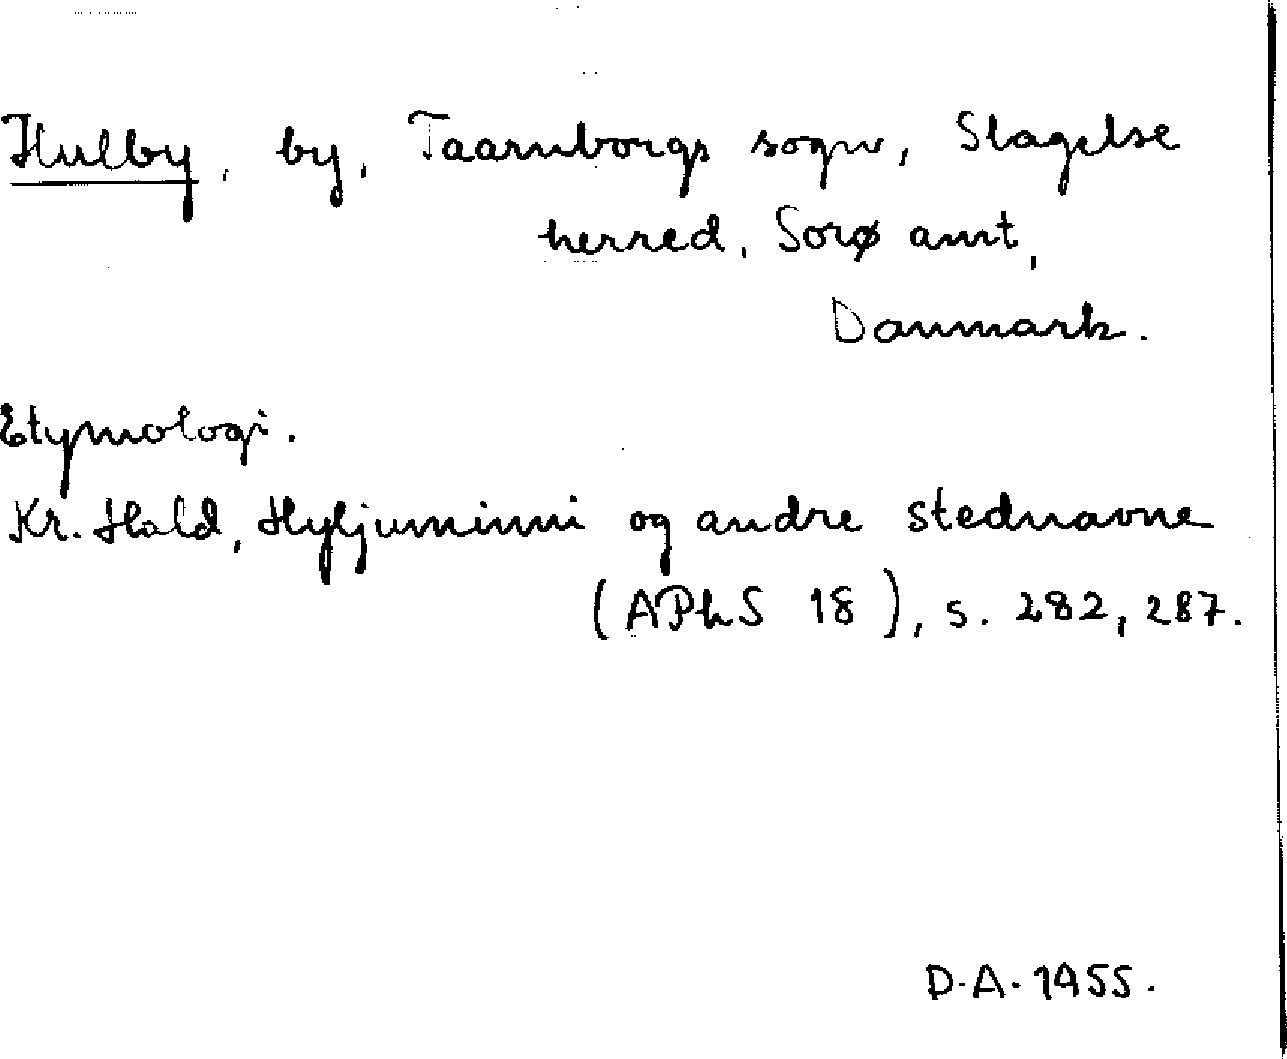 Hulby, by, Taarnborgs sogn, Slagelse
herred, Sorø amt,
Danmark.
Etymologi.
Kr. Hald, Hyljuminni og andre stednavne
(APhS 18), s. 282, 287.
D.A. 1955.